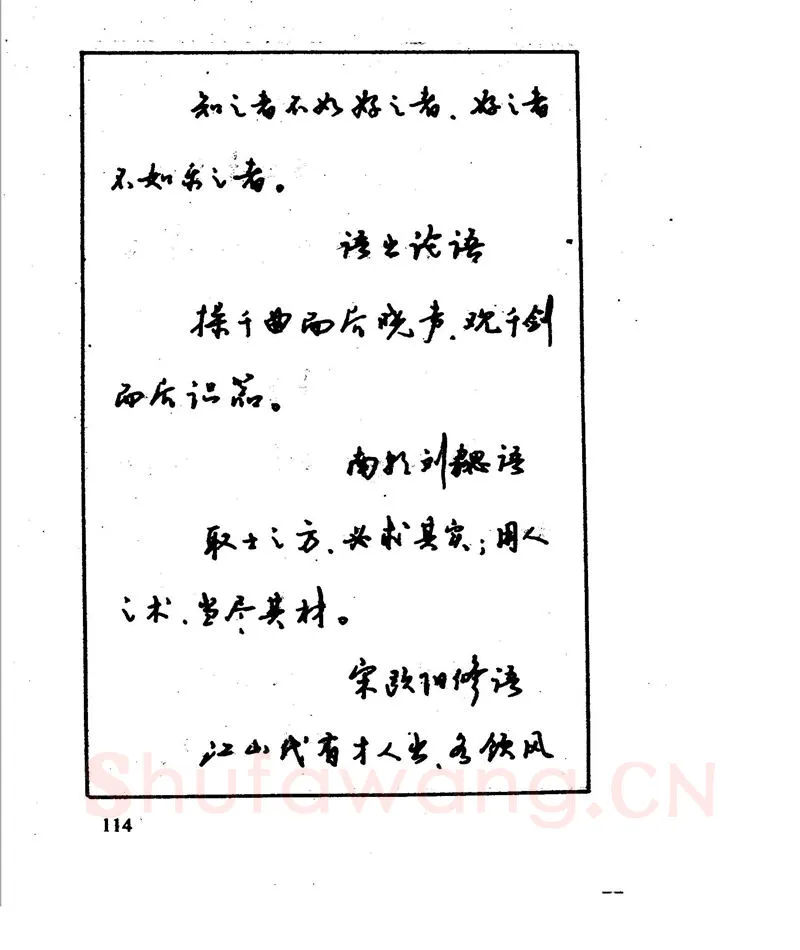 知之者不如好之者，好之者
不如乐之者。
语出论语
操千曲而后晓声，观千剑
而后识器。
南朝刘勰语
取士之方，必求其实；用人
之术，当尽其材。
宋欧阳修语
江山代有才人出，各领风
Shufawang.CN
114